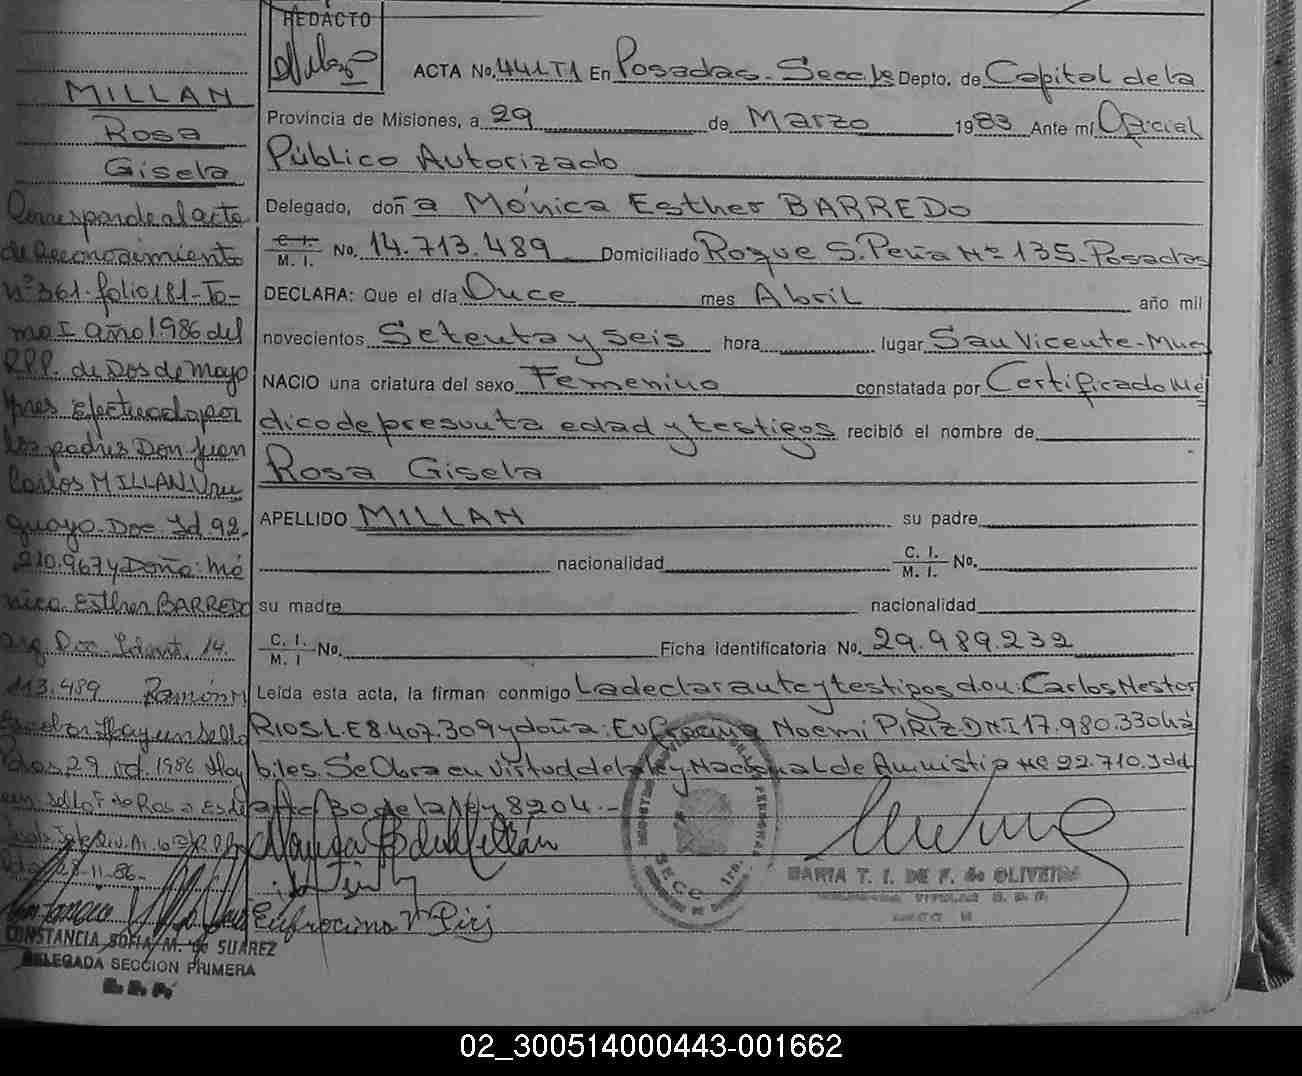 REDACTO
ACTA No. 441T1 En Posadas. Secc. 1ª Depto. de Capital de la
Provincia de Misiones, a 29 de Marzo 1983 Ante mí Oficial
Público Autorizado
Delegado, doña Mónica Esther BARREDO
C. I.
M. I. No. 14.713.489 Domiciliado Roque S. Peña Nº 135-Posadas
DECLARA: Que el día Once mes Abril año mil
novecientos Setenta y seis hora lugar San Vicente-Mnes
NACIO una criatura del sexo Femenino constatada por Certificado Mé
dico de presunta edad y testigos recibió el nombre de
Rosa Gisela
APELLIDO MILLAN su padre
nacionalidad C. I.
M. I. No.
su madre nacionalidad
C. I.
M. I No. Ficha identificatoria No. 29.989.232
Leída esta acta, la firman conmigo La declarante y testigos don: Carlos Nestor
RIOS L.E 8.407.309 y doña: Eufrocina Noemi PIRIZ DNI 17.980.330 há
biles. Se Obra en virtud de la ley Nacional de Amnistia Nº 22.710. Idd
arto 30 de la ley 8204.-
Eufrocina N Piriz
MARIA T. I. DE F. de OLIVEIRA
MILLAN
Rosa
Gisela
Corresponde al acta
de Reconocimiento
nº 361-folio 181-To-
mo I año 1986 del
RPP. de Dos de Mayo
Mnes Efectuado por
los padres Don Juan
Carlos MILLAN Uru
guayo-Doc Id. 92.
210.967 y Doña: Mó
nica Esther BARREDO
arg Doc. Ident. 14.
713.489 Ramón M
Escobar Hay un sello
Pdas, 29 oct. 1986 Hay
un sello
28-11-86-
CONSTANCIA SOFIA M. de SUAREZ
DELEGADA SECCION PRIMERA
R. P. P.
02_300514000443-001662